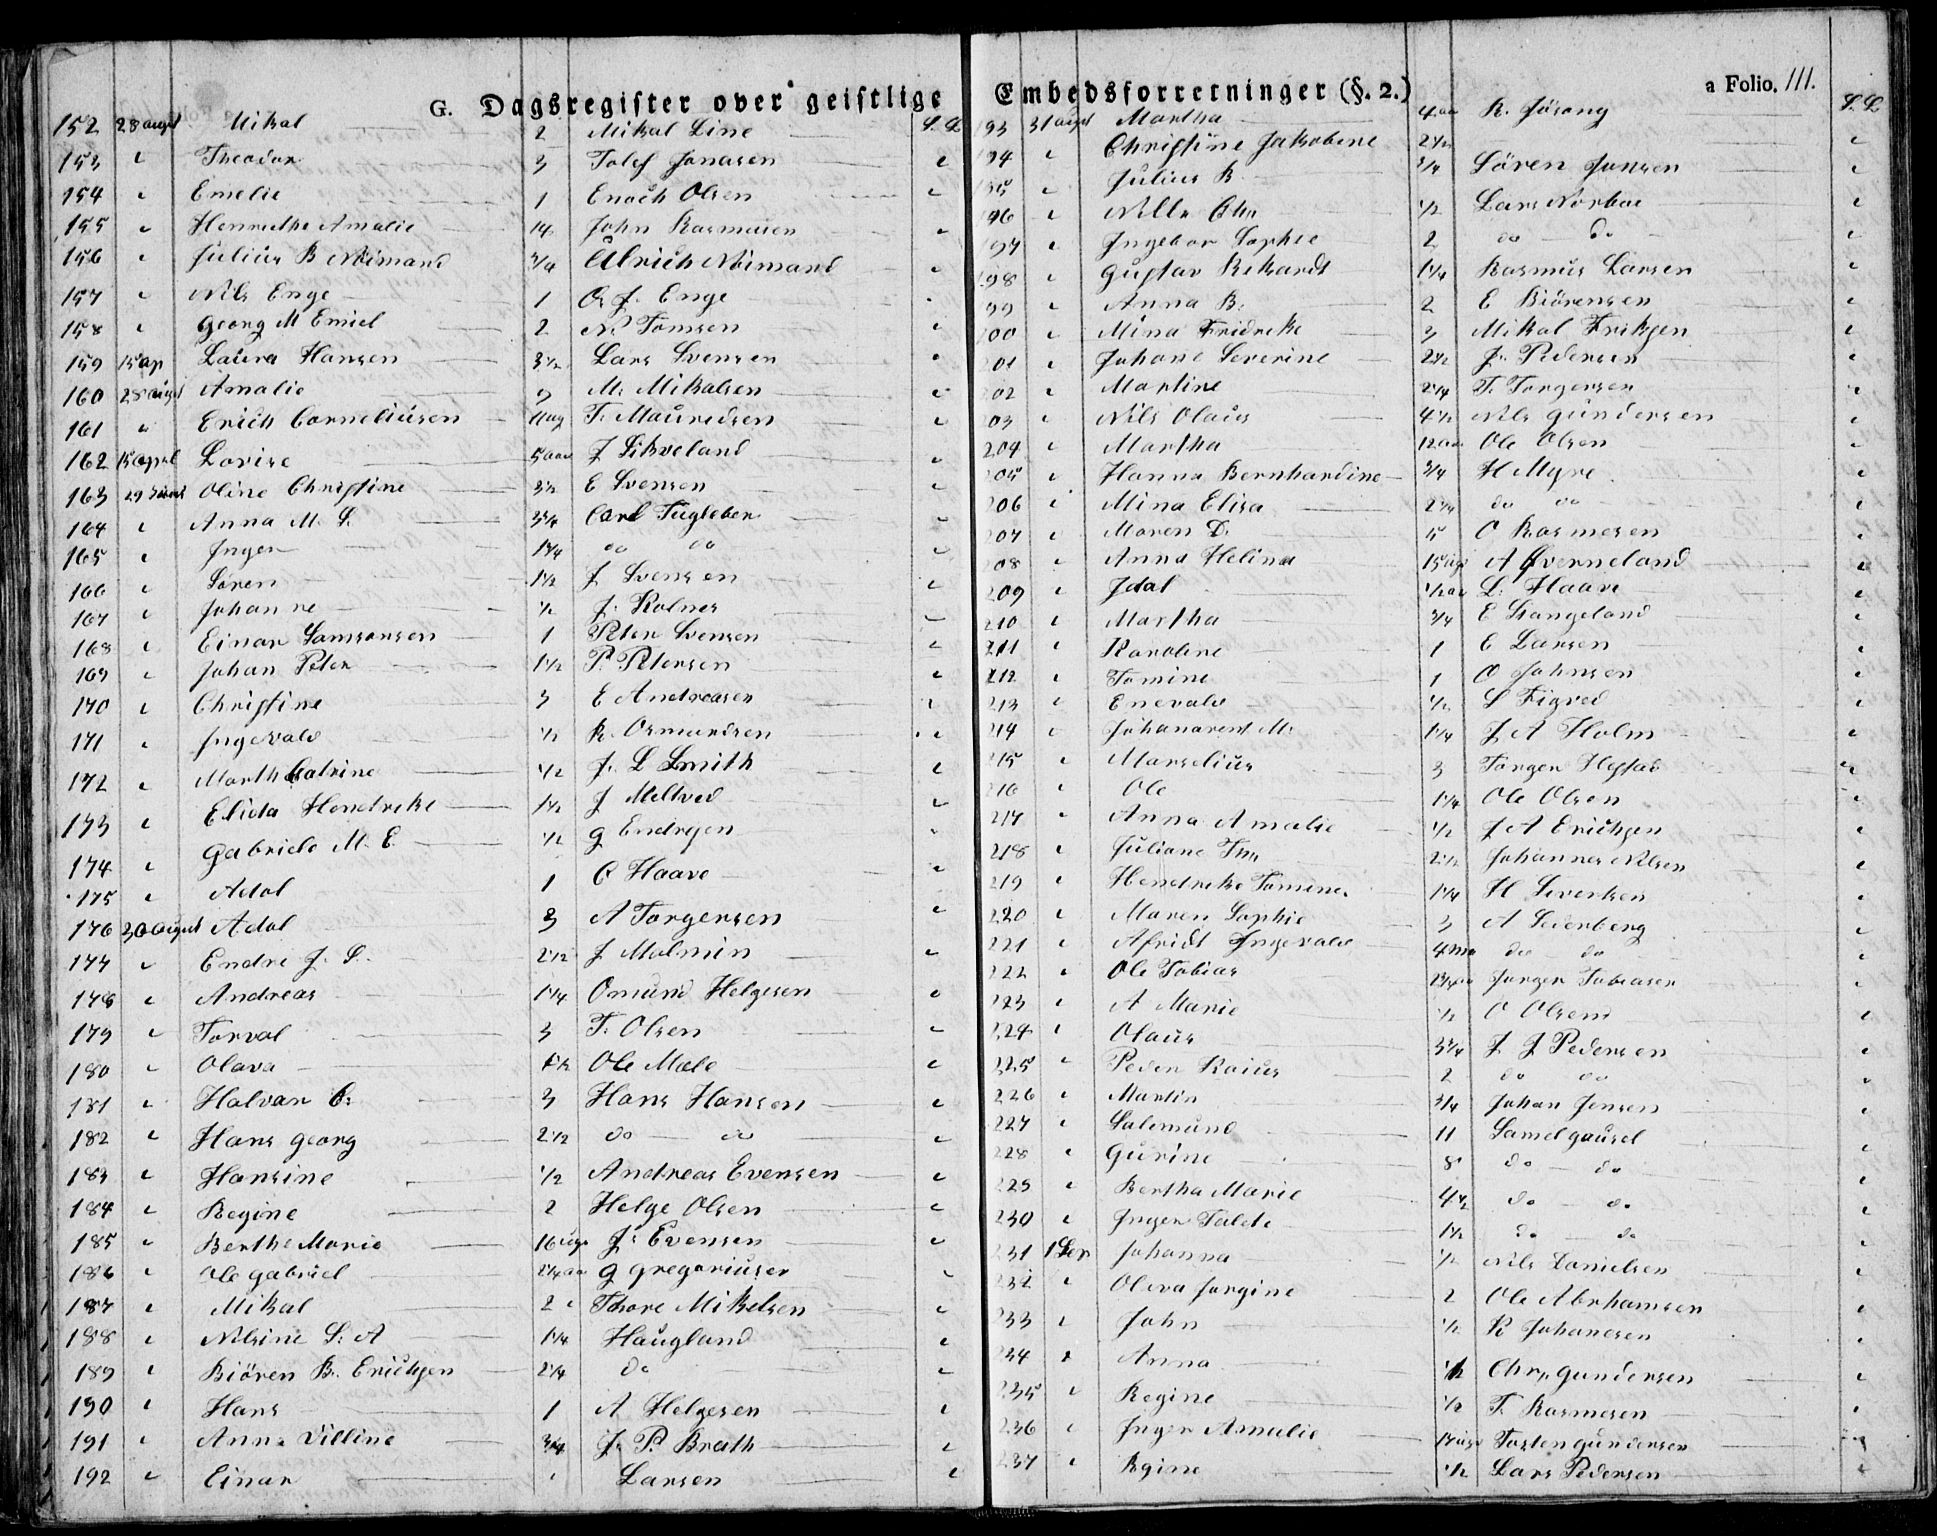 G. Dagsregister over geistlige Embedsforretninger (§. 2.) a Folio. 111.
152 28 augst Mikal 2 Mikal Line S. L
153 " Theodor 3 Tolef Jonasen "
154 " Emelie 1 Enoch Olsen "
155 " Henriethe Amalie 14 John Rasmusen "
156 " Julius B Nümand 3/4 Ulrich Nümand "
157 " Nils Enge 1 O J. Enge "
158 " Georg M Emiel 2 N. Tomsen "
159 15 ap Laura Hansen 3 1/2 Lars Svensen "
160 28 augst Amalie M. Mikalsen "
161 " Erich Corneliusen 11 ug T. Mauridsen "
162 15 april Lovise 5 aar J Sikveland "
163 29 Oline Christine 3 1/2 E Svensen "
164 " Anna M. S. 3 3/4 Carl Fugleber "
165 " Inger 1 3/4 do do "
166 " Sören 1 1/2 J Svensen "
167 " Johanne 1/2 J. Kolner "
168 " Einar Samsonsen 1 Peter Svensen "
169 " Johan Peter 1 1/2 P. Petersen "
170 " Christine 3 E Andreasen "
171 " Ingevald 1/2 R. Osmundsen "
172 " Marth Catrine 1/2 J. L Smith "
173 " Elida Hendreke 1 1/2 J Meltved "
174 " Gabriele M. E 1/2 G Endresen "
175 " Adol 1 C Haave "
176 30 august Adol 3 A Torgersen "
177 " Endre J. S. 2 1/2 J Malmin "
178 " Andreas 1 1/4 Omund Helgesen "
179 " Torval 3 T. Olsen "
180 " Olava 1 1/2 Ole Mæle "
181 " Halvar C. 3 Hans Hansen "
182 " Hans Georg 2 1/2 do do "
183 " Hansine 1/2 Andreas Evensen "
184 " Regine 2 Helge Olsen "
185 " Berthe Marie 16 uge J. Evensen "
186 " Ole Gabriel 2 1/4 aar G Gregoriusen "
187 " Mikal 2 " Thore Mikelsen "
188 " Nilsine S. A 1 1/4 Haugland "
189 " Biören B. Erichsen 2 1/4 do "
190 " Hans 1 A Helgesen "
191 " Anne Villine 3/4 J. P. Brath "
192 " Einar " Larsen "
193 31 augst Martha 4 aar R. Jösang S. L
194 " Christine Jakobine 2 1/2 "
195 " Julius B. 3/4 Sören Jonsen "
196 " Nille Chr 1/2 Lars Norboe "
197 " Ingebor Sophie 2 do do "
198 " Gustav Rikardt 1 1/4 Rasmus Larsen "
99 " Anna B. 2 E Biörensen "
200 " Mina Fridreke 3 Mikal Eriksen "
201 " Johane Severine 2 1/2 J. Pedersen "
202 " Martine 2 1/4 T. Torgersen "
03 " Nils Olaus 4 1/2 Nils Gundersen "
204 " Martha 12 aar Ole Olsen "
205 " Hanna Bernhardine 3/4 H Myre "
206 " Mina Elisa 2 1/4 do do "
207 " Maren D. 5 O Rasmesen "
208 " Anna Helina 15 uge A Qverneland "
209 " Idal 1/2 aar L. Haave "
210 " Martha 3/4 E Stangeland "
211 " Karoline 1 C Larsen "
212 " Tomine 1 O Johnsen "
213 " Enevald 1/2 S Figved "
214 " Johanarent M. 1 1/4 J A Holm "
215 " Marselius 3 Torger Hestad "
216 " Ole 1 1/4 Ole Olsen "
217 " Anna Amalie 1/2 J A Erichsen "
218 " Juliane 2 1/2 Johannes Nilsen "
219 " Hendreke Tomine 1 1/4 H Sivertsen "
220 " Maren Sophie 3 A Seierberg "
221 " Afridt Ingevald 4 maa do do "
222 " Ole Tobias Jørgen Tobiasen "
223 " A Marie 1/2 O Olsen "
224 " Olaus 3 3/4 J J Pedersen "
225 " Peder Kaius 2 do do "
226 " Martin 3/4 Johan Jensen "
227 " Salemund 11 Samel Gausel "
228 " Gurine 8 do do "
229 " Bertha Marie 4 1/2 do do "
230 " Inger Talete 1 1/2 do do "
231 1 Sep Johanna 1/2 Nils Danielsen "
232 " Oleva Jorgine 2 Ole Abrhamsen "
233 " John 1/2 R Johanesen "
234 " Anna 1/2 Chr. Gundersen "
235 " Regine 1/2 T. Rasmesen "
236 " Inger Amalie Tosten Gundersen "
237 " Rgine 1/2 Lars Pedersen "